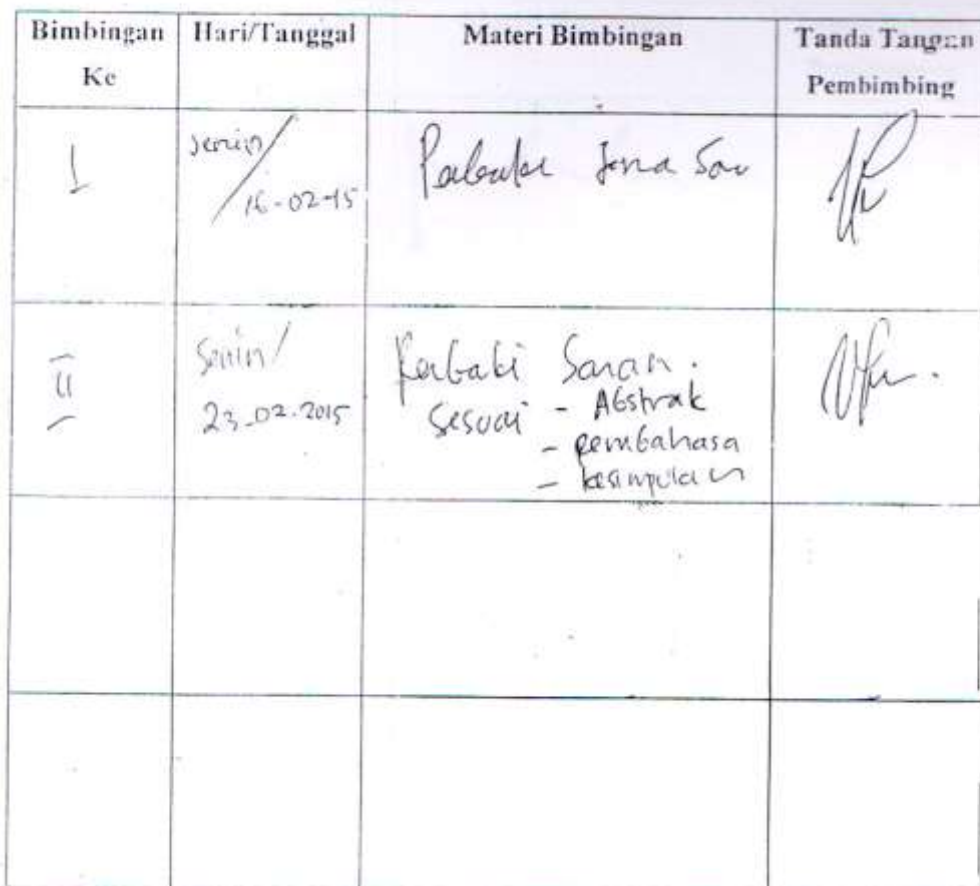 Bimbingan Ke
Hari/Tanggal
Materi Bimbingan
Tanda Tangan Pembimbing
I
senin/
16-02-15
II
Senin/
23-02-2015
Saran.
Sesuai - Abstrak
- pembahasa
- kesimpulan